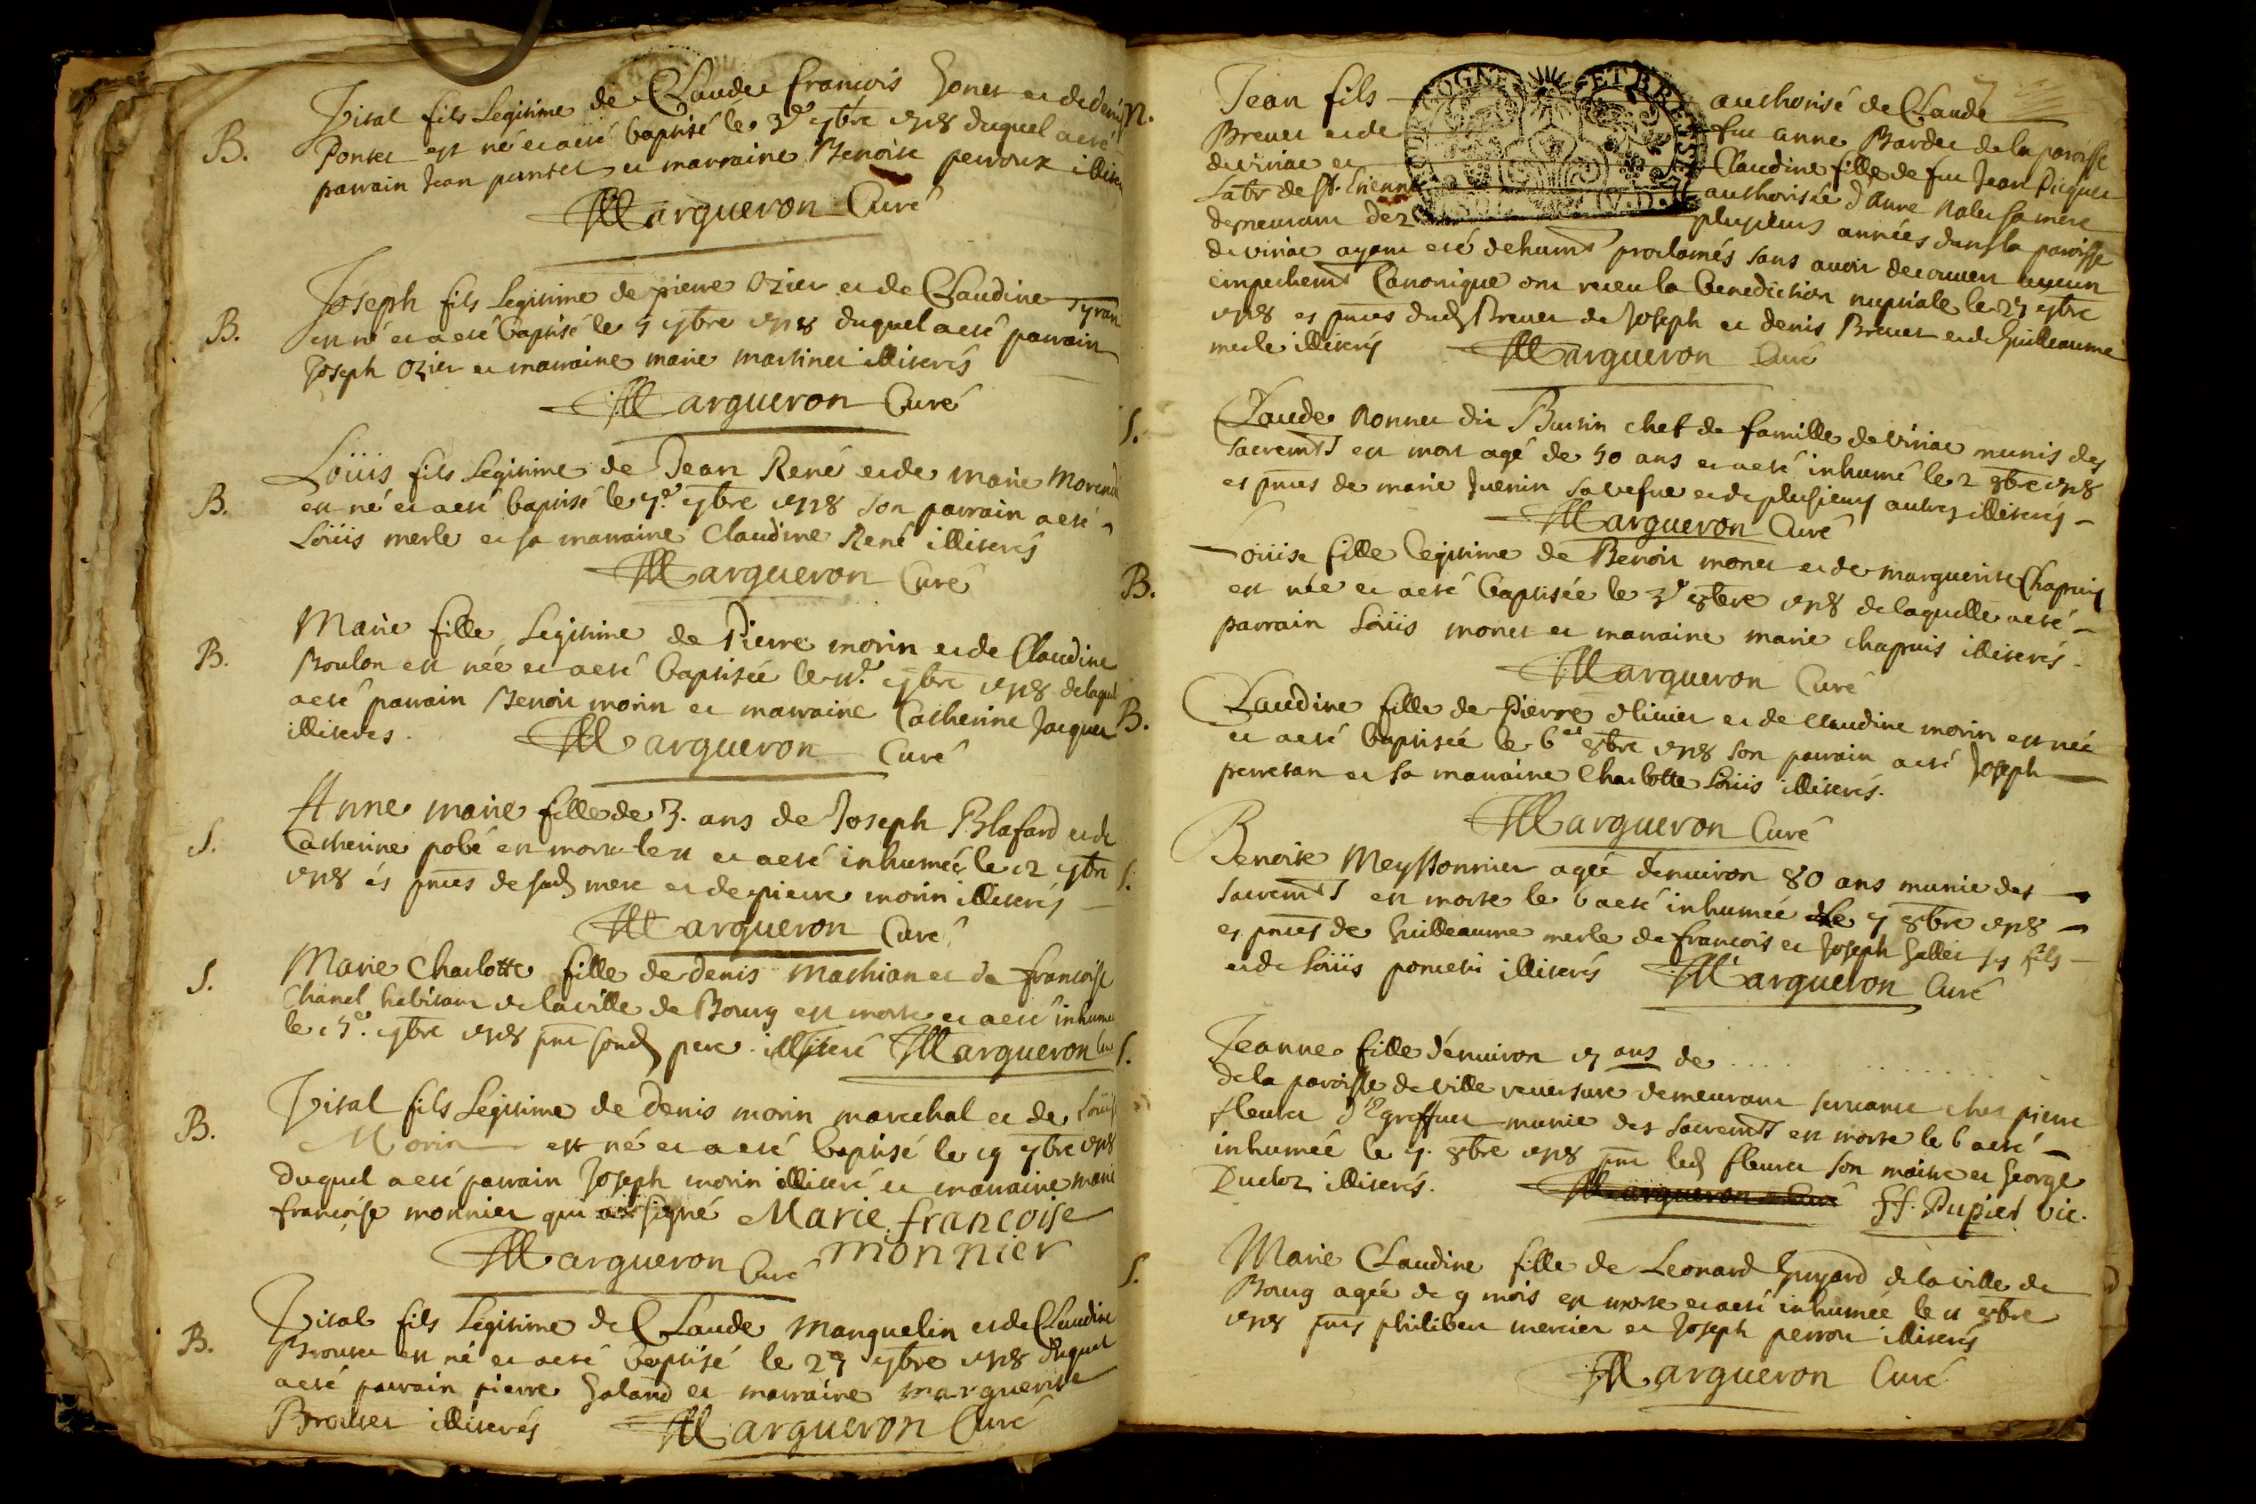 B. Vital fils Legitime de Claude francois Gonet et de denise
Pontet est né et a eté baptisé le 3e 7bre 1718 duquel a eté
parrain Jean pontet et marraine Benoite perroux illiterés
Margueron Curé
B. Joseph fils legitime de pierre Ozier et de Claudine Tyran
est né et a eté baptisé le 5 7bre 1718 duquel a eté parrain
Joseph Ozier et marraine marie martinet illiterés
Margueron Curé
B. Loüis fils legitime de Jean René et de marie
est né et a eté baptisé le 7e. 7bre 1718 son parrain a eté
Loüis merle et sa marraine Claudine René illiterés
Margueron Curé
B. Marie fille Legitime de Pierre morin et de Claudine
Boulon est née et a eté baptisée le 11e. 7bre 1718 de laquel
a eté parrain Benoit morin et marraine Catherine Jacquet
illiterés. Margueron Curé
S. Anne marie fille de 3. ans de Joseph Blafard et de
Catherine pobé est morte le 11 et a eté inhumée le 12 7bre
1718 és pntes de sad mere et de pierre morin illiterés
Margueron Curé
S. Marie Charlotte fille de denis mathian et de francoise
Chanel habitant de la ville de Bourg est morte et a eté inhumée
le 15e. 7bre 1718 pnt sond pere illiteré Margueron Cu
B. Vital fils Legitime de Denis morin marechal et de Loüise
Morin est né et a eté baptisé le 19 7bre 1718
duquel a eté parrain Joseph morin illiteré et marraine marie
francoise monnier qui a signé Marie francoise
Margueron Curé monnier
B. Vital fils Legitime de Claude Manguelin et de Claudine
Brouter est né et a eté baptisé le 27 7bre 1718 duquel
a eté parrain pierre Galand et marraine marguerite
Brouter illiterés Margueron Curé
M. Jean fils authorisé de Claude
Brevet et de fue anne Bardet de la paroisse
de viriat et Claudine fille de fue Jean Piquet
Labr de St. Etienne authorisée d'Anne sa mere
demeurant dez plusieurs années dans la paroisse
de viriat ayant eté dehumt proclamés sans avoir decouvert aucun
empechemt Canonique ont receu la benediction nuptiale le 27 7bre
1718 es pntes dud Brevet de Joseph et denis Brevet et de Guilleaume
merle illiterés Margueron Curé
S. Claude Bonnet dit Burtin chef de famille de viriat munis des
sacremts est mort agé de 50 ans et a eté inhumé le 2 8bre 1718
es pntes de marie Juenin sa vefue et de plusieurs autres illiterés
Margueron Curé
B. Loüise fille legitime de Benoit monet et de marguerite Chapuis
est née et a eté baptisée le 3e 8bre 1718 de laquelle a eté
parrain Loüis monet et marraine marie chapuis illiterés.
Margueron Curé
B. Claudine fille de Pierre olivier et de claudine morin est née
et a eté baptisée le 6e 8bre 1718 son parrain a eté Joseph
perretan et sa marraine Charlotte Loüis illiterés.
Margueron Curé
S. Benoite Meyssonnier agée d'enuiron 80 ans munie des
sacremts est morte le 6 a eté inhumée le 7 8bre 1718
es pntes de Guilleaume merle de francois et Joseph Gallet ses fils
et de Loüis poncetis illiterés Margueron Curé
S. Jeanne fille d'enuiron 17 ans de . . . . . . . . . .
de la paroisse de ville reversure demeurant servante chez pierre
fleuret d'Egreffuet munie des sacremts est morte le 6 a eté
inhumée le 7. 8bre 1718 pnt led fleuret son maitre et George
Ducloz illiterés. Margueron Curé ff. Pupier vic.
S. Marie Claudine fille de Leonard Guyard de la ville de
Bourg agée de 9 mois est morte et a eté inhumée le 11 8bre
1718 pnts philibert mercier et Joseph perrou illiterés
Margueron Curé